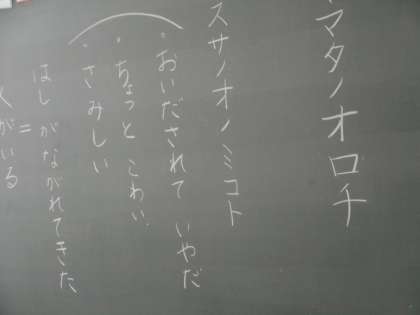 マタノオロチ
スサノオノミコト
・おいだされて いやだ
・ちょっと こわい.
・さみしい
はしがながれてきた
=
がいる